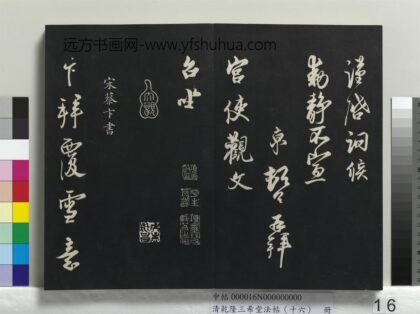 远方书画网-www.yfshuhua.com
谨启詗候
動静不宣
京頓首再拜
宫使觀文
台坐
宋蔡卞書
卞拜覆雪意
16
中帖 000016N000000000
清乾隆三希堂法帖（十六） 冊